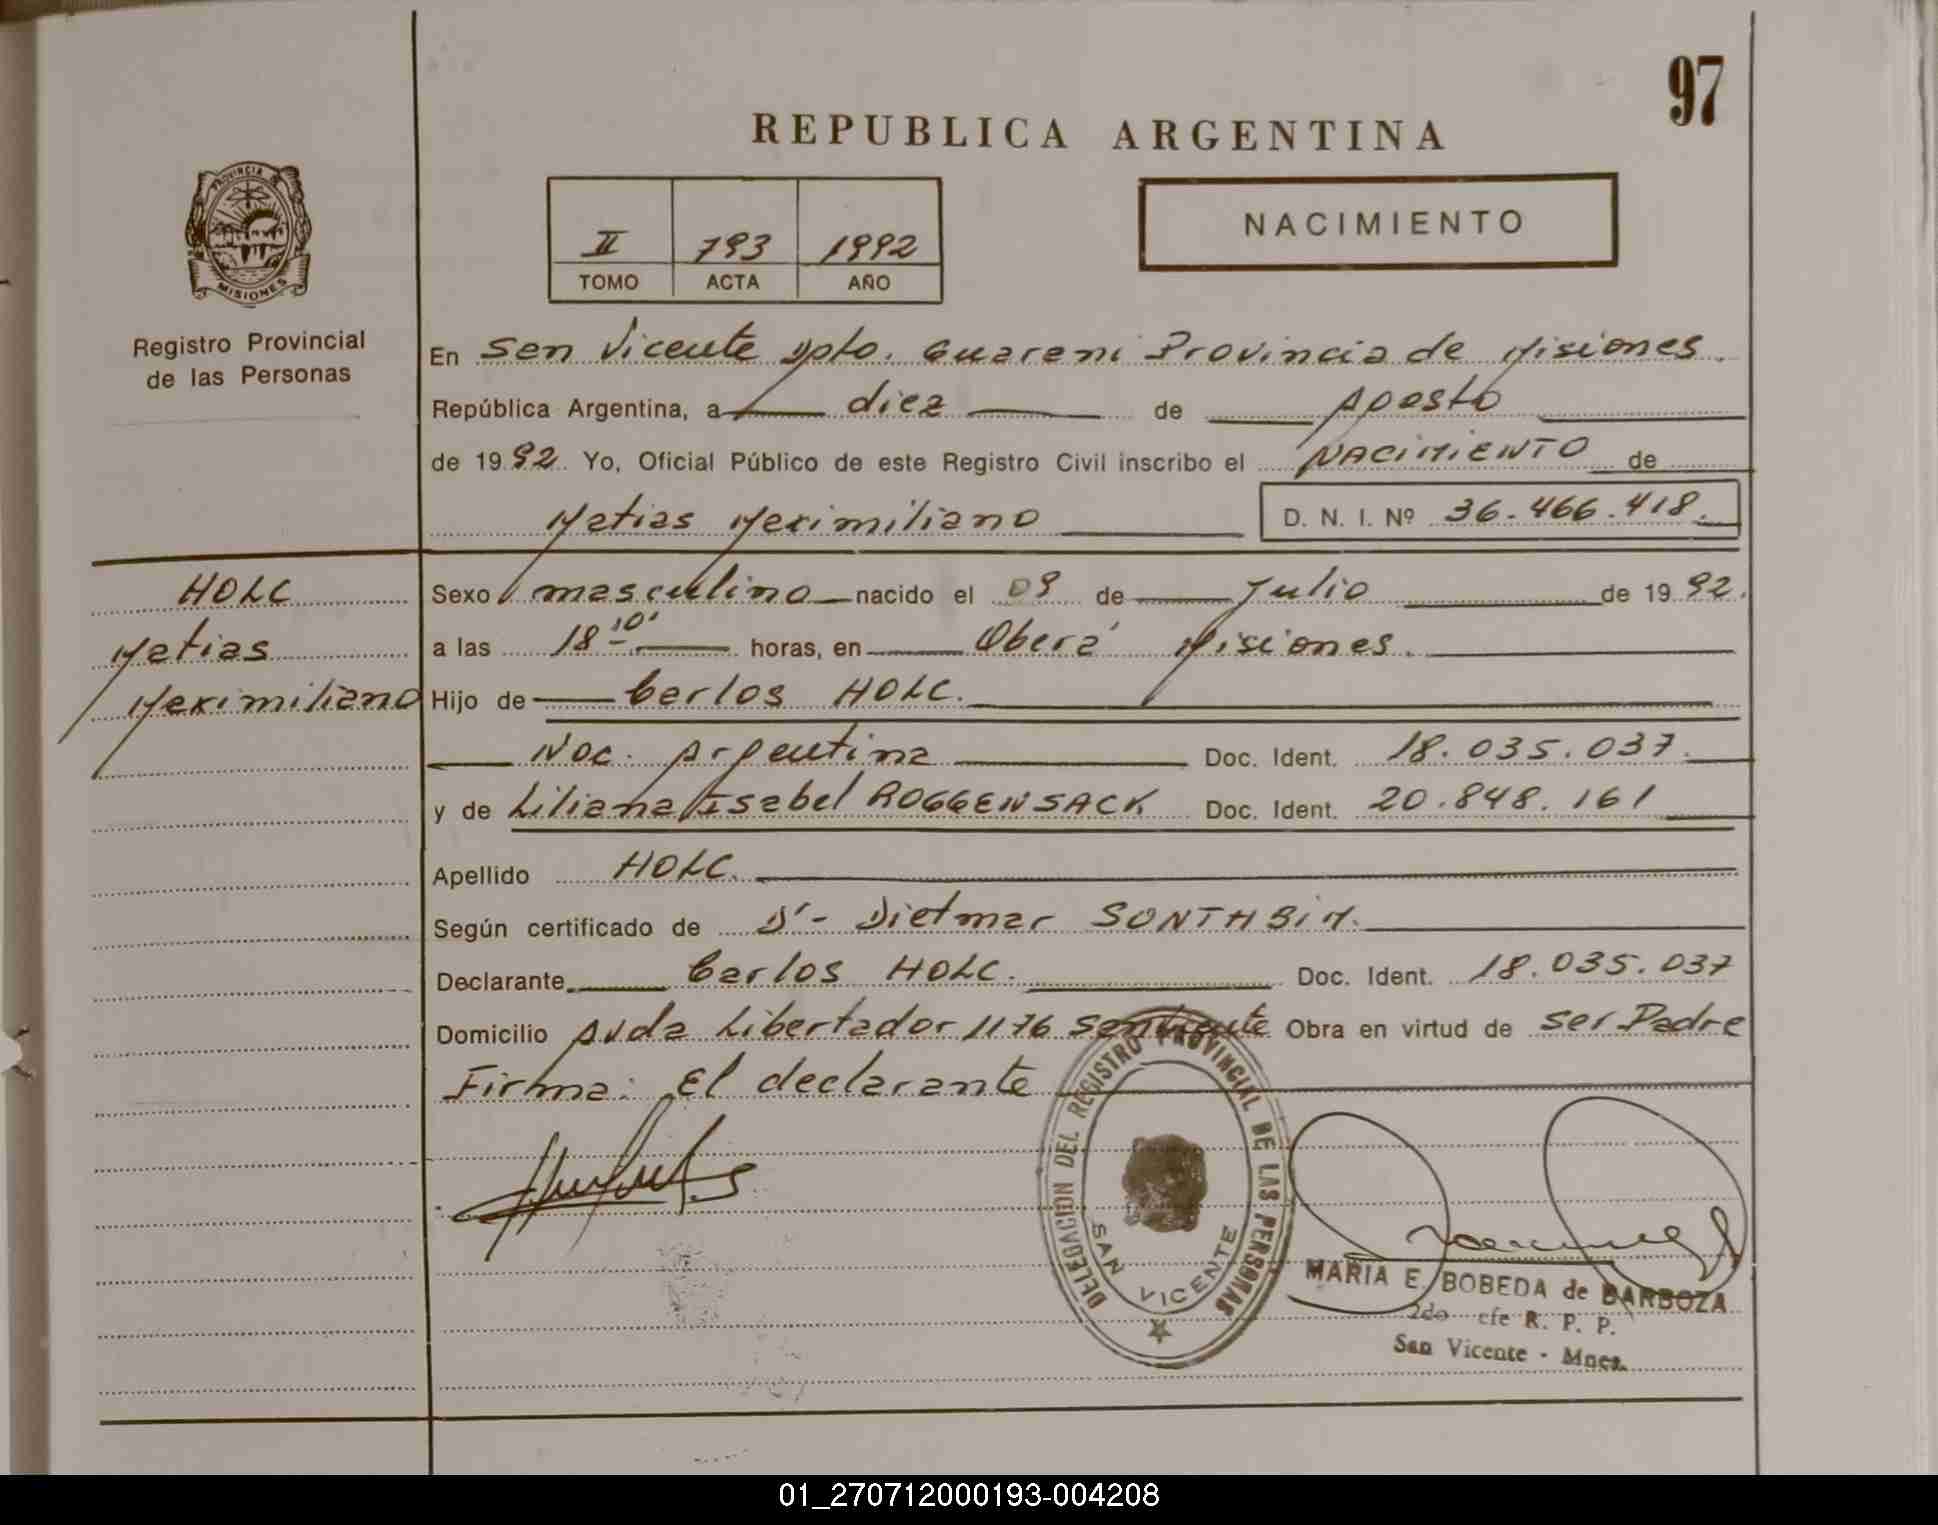 97
REPUBLICA ARGENTINA
PROVINCIA DE
MISIONES
Registro Provincial
de las Personas
II 793 1992
TOMO ACTA AÑO
NACIMIENTO
En San Vicente Dpto. Guarani Provincia de Misiones.
República Argentina, a diez de Agosto
de 1992 Yo, Oficial Público de este Registro Civil inscribo el NACIMIENTO de
Matias Maximiliano D. N. I. Nº 36.466.418.
HOLC
Matias
Maximiliano
Sexo masculino nacido el 09 de Julio de 1992.
a las 18 10' horas, en Oberá Misiones.
Hijo de Carlos HOLC.
Nac. Argentina Doc. Ident. 18.035.037.
y de Liliana Isabel ROGGENSACK Doc. Ident. 20.848.161
Apellido HOLC.
Según certificado de Dr- Dietmar SONTHEIM.
Declarante Carlos HOLC. Doc. Ident. 18.035.037
Domicilio Avda Libertador 1176 San Vicente Obra en virtud de ser Padre
Firma: El declarante
DELEGACION DEL REGISTRO PROVINCIAL DE LAS PERSONAS
SAN VICENTE
MARIA E. BOBEDA de BARBOZA
2do efe R. P. P.
San Vicente - Mnes.
01_270712000193-004208